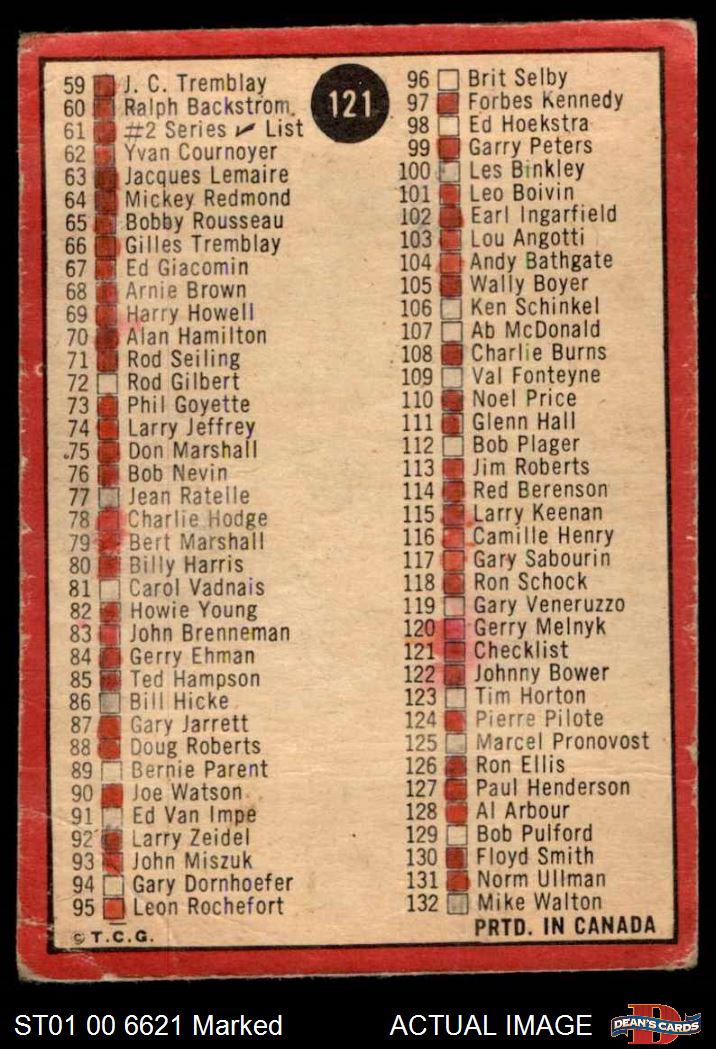 121
59 J. C. Tremblay
60 Ralph Backstrom
61 #2 Series ✓ List
62 Yvan Cournoyer
63 Jacques Lemaire
64 Mickey Redmond
65 Bobby Rousseau
66 Gilles Tremblay
67 Ed Giacomin
68 Arnie Brown
69 Harry Howell
70 Alan Hamilton
71 Rod Seiling
72 Rod Gilbert
73 Phil Goyette
74 Larry Jeffrey
75 Don Marshall
76 Bob Nevin
77 Jean Ratelle
78 Charlie Hodge
79 Bert Marshall
80 Billy Harris
81 Carol Vadnais
82 Howie Young
83 John Brenneman
84 Gerry Ehman
85 Ted Hampson
86 Bill Hicke
87 Gary Jarrett
88 Doug Roberts
89 Bernie Parent
90 Joe Watson
91 Ed Van Impe
92 Larry Zeidel
93 John Miszuk
94 Gary Dornhoefer
95 Leon Rochefort
© T.C.G.
96 Brit Selby
97 Forbes Kennedy
98 Ed Hoekstra
99 Garry Peters
100 Les Binkley
101 Leo Boivin
102 Earl Ingarfield
103 Lou Angotti
104 Andy Bathgate
105 Wally Boyer
106 Ken Schinkel
107 Ab McDonald
108 Charlie Burns
109 Val Fonteyne
110 Noel Price
111 Glenn Hall
112 Bob Plager
113 Jim Roberts
114 Red Berenson
115 Larry Keenan
116 Camille Henry
117 Gary Sabourin
118 Ron Schock
119 Gary Veneruzzo
120 Gerry Melnyk
121 Checklist
122 Johnny Bower
123 Tim Horton
124 Pierre Pilote
125 Marcel Pronovost
126 Ron Ellis
127 Paul Henderson
128 Al Arbour
129 Bob Pulford
130 Floyd Smith
131 Norm Ullman
132 Mike Walton
PRTD. IN CANADA
ST01 00 6621 Marked
ACTUAL IMAGE
D
DEAN'S CARDS